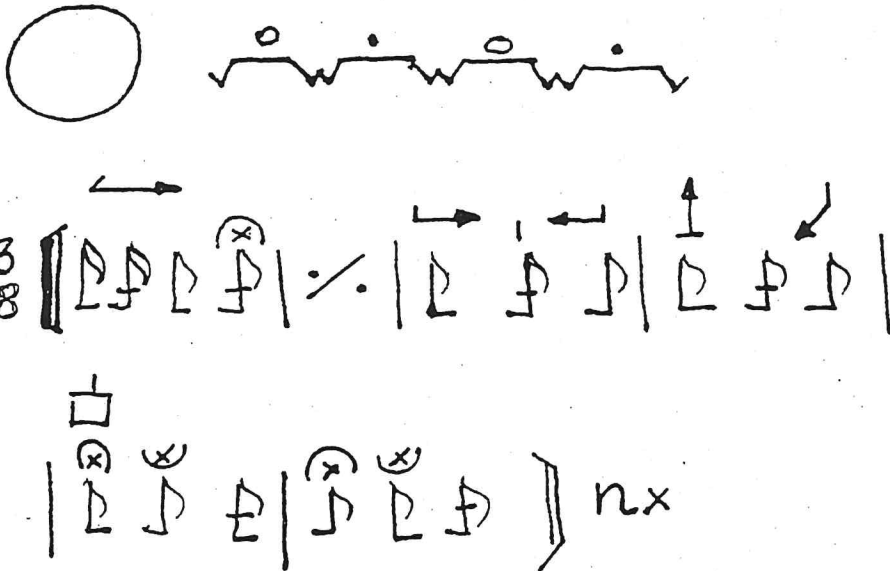 3
8
nx